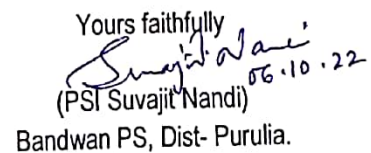 Yours faithfully
Suvajit Nandi
06.10.22
(PSI Suvajit Nandi)
Bandwan PS, Dist- Purulia.